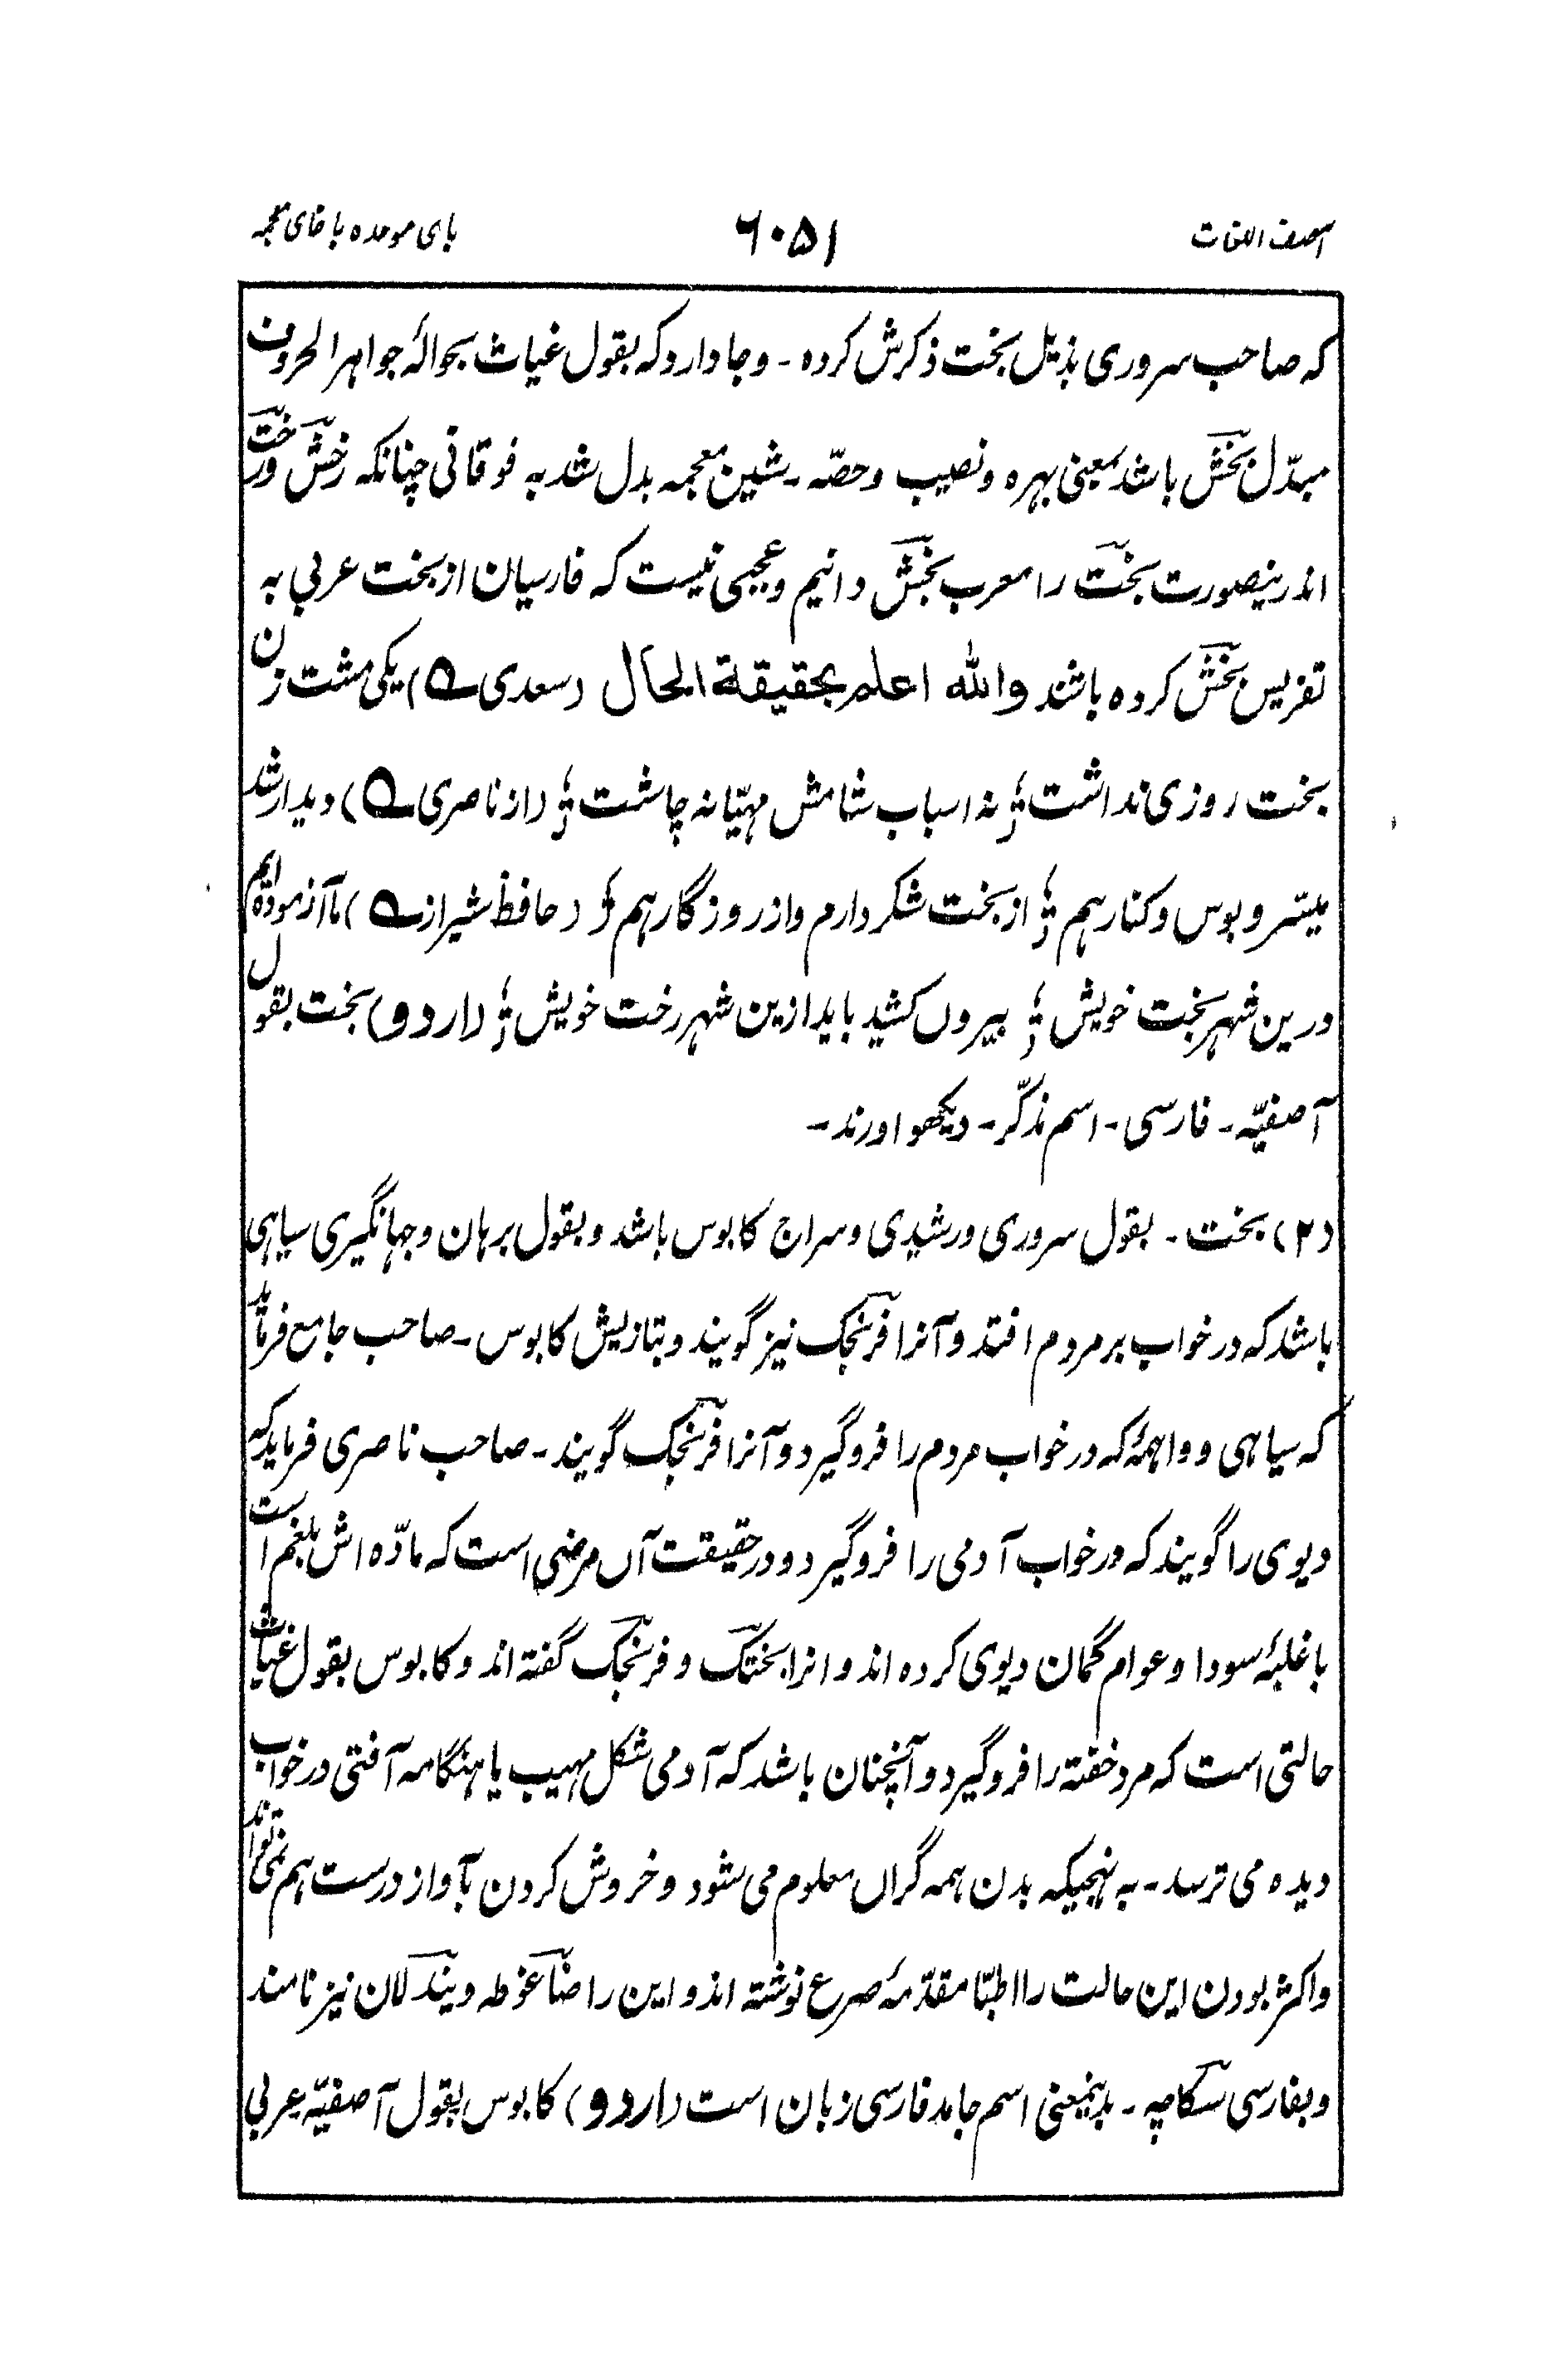 آصف اللغات ۶۰۵۱ بای موحده با خای معجمه
که صاحب سروری بذیل بخت ذکرش کرده - وجا دارد که بقول غیاث بحوالهٔ جواهر الحروف
مبدّل بخش باشد بمعنی بهره و نصیب و حصّه - شین معجمه بدل شد به فوقانی چنانکه رخش و رخت
اندرینصورت بخت را معرب بخش دانیم و عجبی نیست که فارسیان از بخت عربی به
تفریس بخش کرده باشند والله اعلم بحقیقة الحال (سعدی ؎) یکی مشت زن
بخت روزی نداشت ؛ نه اسباب شامش مهیّا نه چاشت ؛ (از ناصری ؎) دیدار شد
میسّر و بوس و کنار هم ؛ از بخت شکر دارم و از روزگار هم ؛ (حافظ شیراز ؎) ما آزموده ایم
درین شهر بخت خویش ؛ بیروں کشید باید ازین شهر رخت خویش ؛ (اردو) بخت بقول
آصفیّه - فارسی - اسم مذکّر - دیکھو اورند -
(۲) بخت - بقول سروری و رشیدی و سراج کابوس باشد و بقول برهان و جهانگیری سیاهی
باشد که در خواب بر مردم افتد و آنرا فرنجک نیز گویند و بتازیش کابوس - صاحب جامع فرماید
که سیاهی و واهمهٔ که در خواب مردم را فروگیرد و آنرا فرنجک گویند - صاحب ناصری فرماید که
دیوی را گویند که در خواب آدمی را فروگیرد و در حقیقت آں مرضی است که مادّه اش بلغم است
با غلبهٔ سودا و عوام گمان دیوی کرده اند و انرا بختک و فرنجک گفته اند و کابوس بقول غیاث
حالتی است که مرد خفته را فروگیرد و آنچنان باشد که آدمی شکل مهیب یا هنگامه آفتی در خواب
دیده می ترسد - به نهجیکه بدن همه گراں معلوم می شود و خروش کردن بآواز درست هم نمی تواند
واکثر بودن این حالت را اطبّا مقدّمهٔ صرع نوشته اند و این را ضاغوطه و نیدلان نیز نامند
و بفارسی سکاچه - بدینمعنی اسم جامد فارسی زبان است (اردو) کابوس بقول آصفیّه عربی